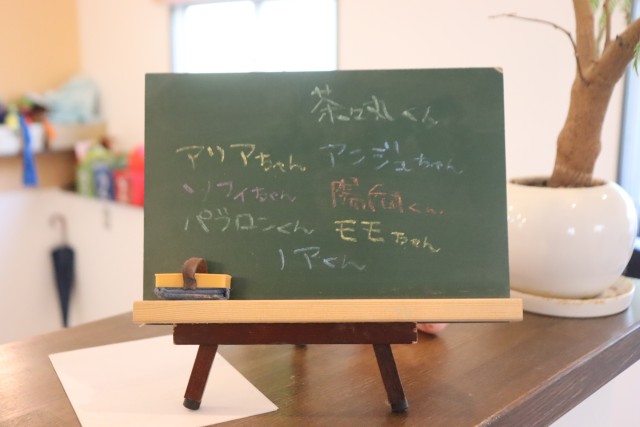 茶々丸くん
アリアちゃん アンジュちゃん
ソフィちゃん 陽向くん
パブロンくん モモちゃん
ノアくん